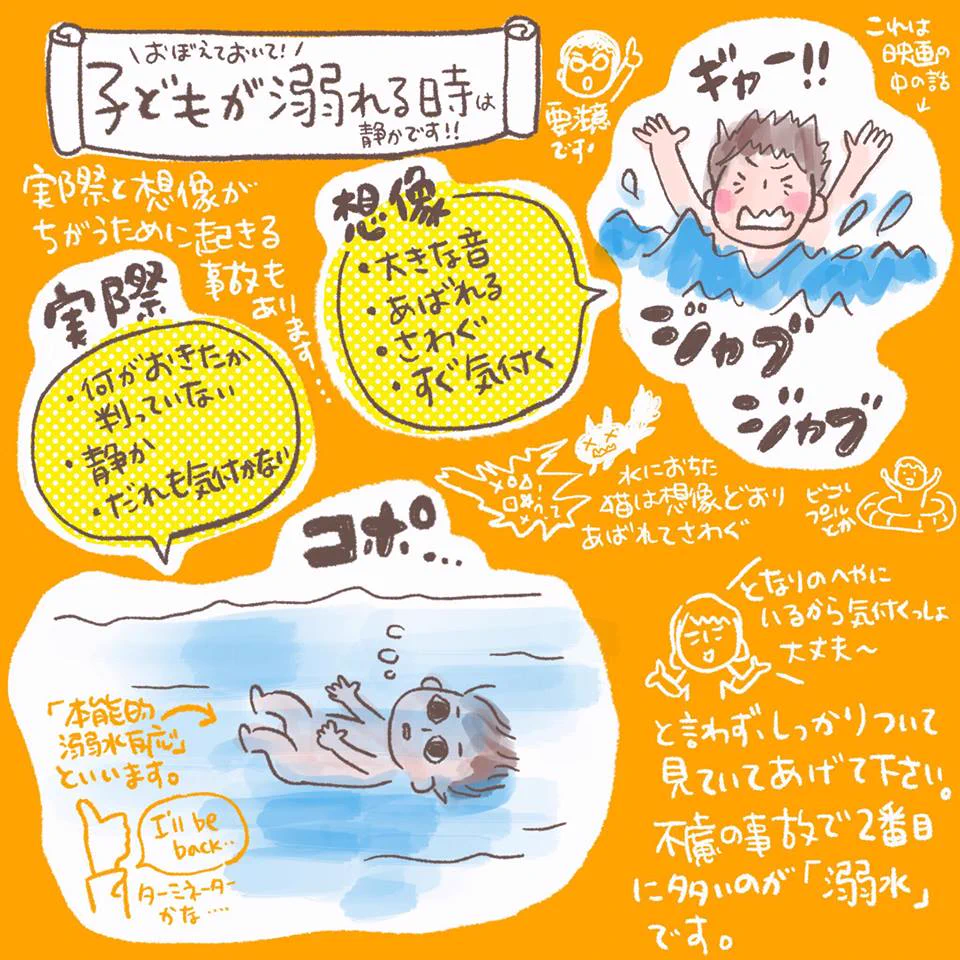 \おぼえておいて!/
子どもが溺れる時は
静かです!!
要注意
です。
これは
映画の
中の話
ギャー!!
実際と想像が
ちがうために起きる
事故も
あります…
想像
・大きな音
・あばれる
・さわぐ
・すぐ気付く
ジャブ
ジャブ
実際
・何がおきたか
判っていない
・静か
・だれも気付かない
水におちた
猫は想像どおり
あばれてさわぐ
プールとか
コポ…
「本能的
溺水反応」
といいます。
I'll be
back..
ターミネーター
かな....
となりのへやに
いるから気付くっしょ
大丈夫〜
と言わず、しっかりついて
見ていてあげて下さい。
不慮の事故で2番目
に多いのが「溺水」
です。